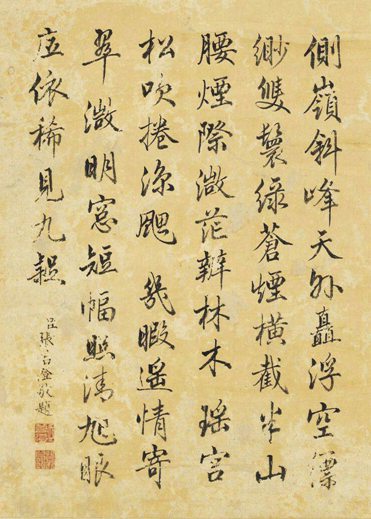 側嶺斜峰天外矗浮空縹
緲雙鬟綠蒼煙橫截半山
腰煙際微茫辨林木瑤宮
松吹捲涼颸幾暇遙情寄
翠微明窗短幅照清旭眼
底依稀見九疑
臣張若澄敬題